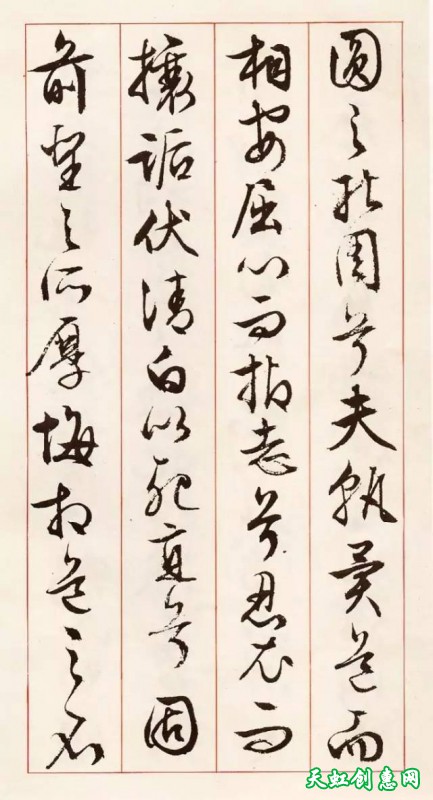 圓之能周兮夫孰異道而
相安屈心而抑志兮忍尤而
攘詬伏清白以死直兮固
前聖之所厚悔相道之不
天虹创惠网